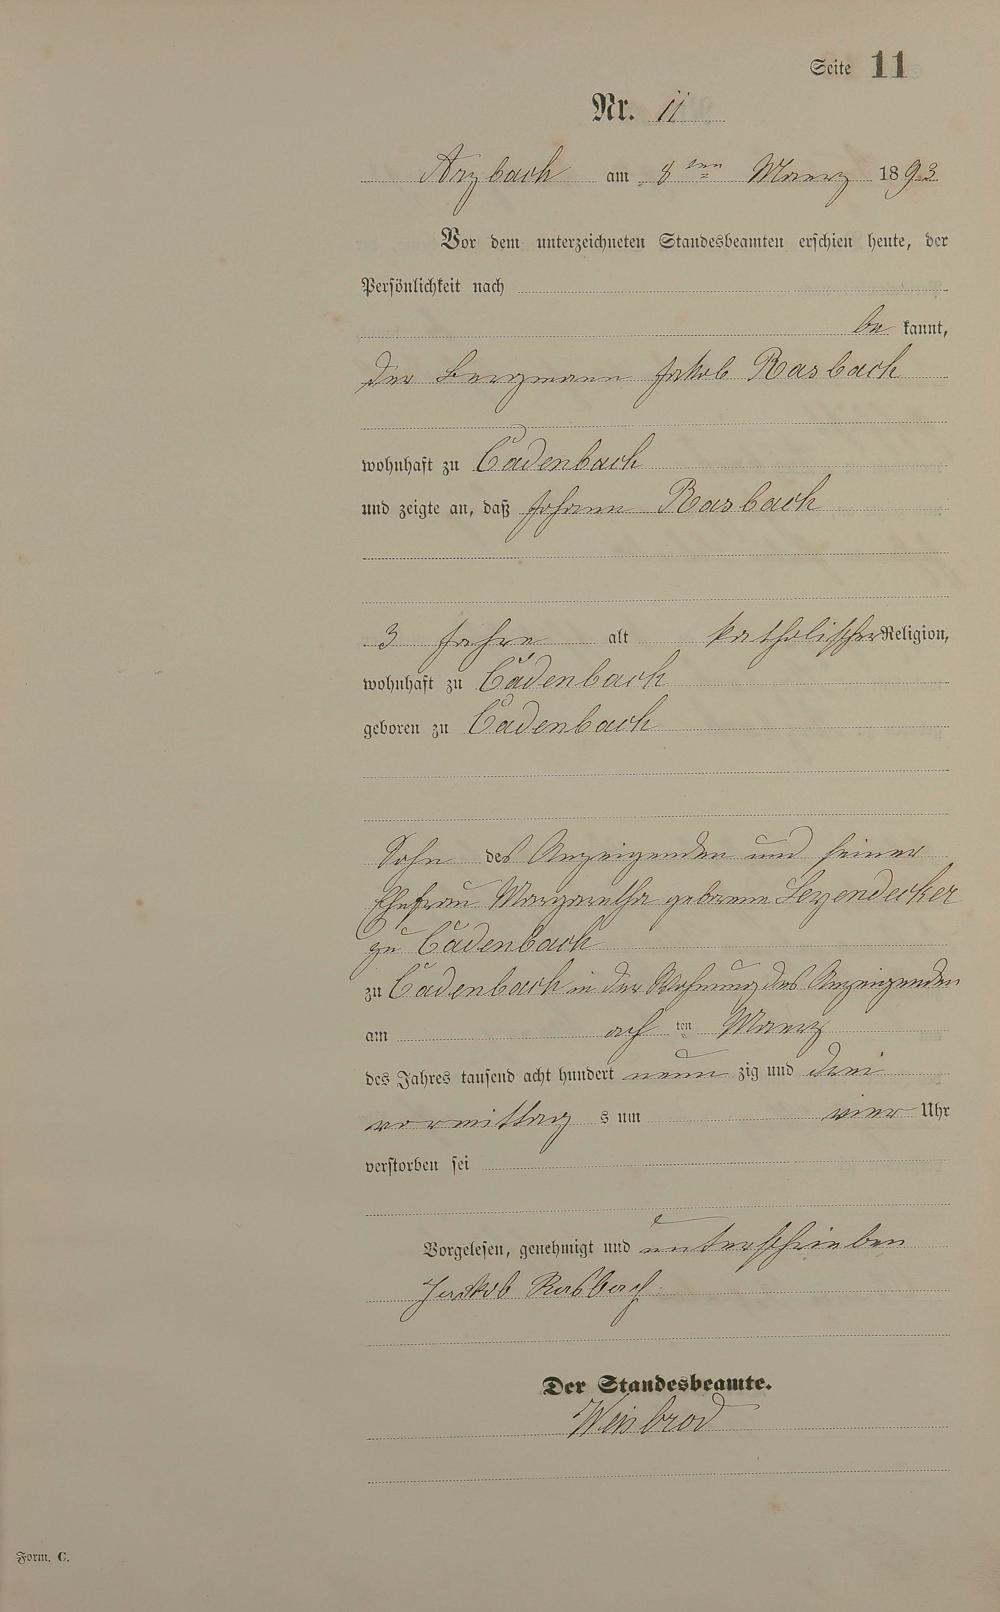 Seite 11
Nr. 11
Arzbach am 8ten Maerz 1893
Vor dem unterzeichneten Standesbeamten erschien heute, der
Persönlichkeit nach
be kannt,
der Bergmann Jakob Rasbach
wohnhaft zu Cadenbach
und zeigte an, daß Johann Rasbach
3 Jahre alt katholischer Religion,
wohnhaft zu Cadenbach
geboren zu Cadenbach
Sohn des Anzeigenden und seiner
Ehefrau Margaretha geborene Leyendecker
zu Cadenbach
zu Cadenbach in der Wohnung des Anzeigenden
am acht ten Maerz
des Jahres tausend acht hundert neun zig und drei
vormittag s um vier Uhr
verstorben sei
Vorgelesen, genehmigt und unterschrieben
Jackob Rasbach
Der Standesbeamte.
Weisbrod
Form. C.